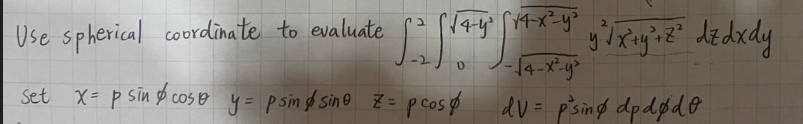 Use spherical coordinate to evaluate ∫_{-2}^{2} ∫_{0}^{√(4-y²)} ∫_{-√(4-x²-y²)}^{√(4-x²-y²)} y²√(x²+y²+z²) dzdxdy
set x= ρ sin φ cosθ y= ρ sin φ sinθ z= ρ cos φ dV= ρ² sin φ dρ dφ dθ